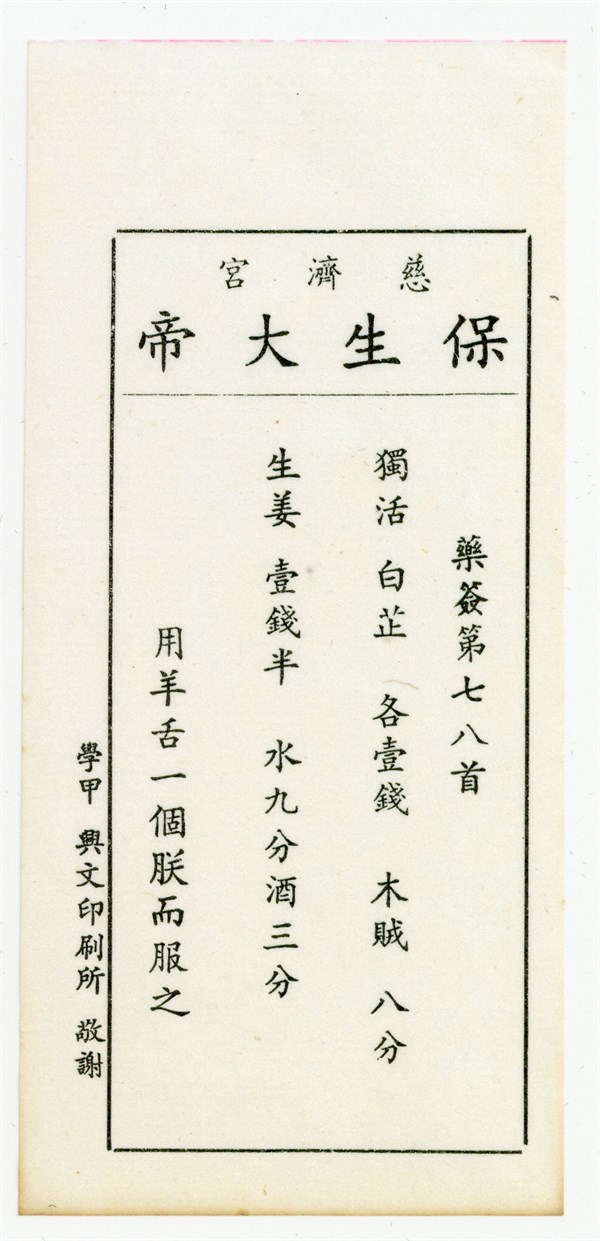 慈濟宮
保生大帝
藥簽第七八首
獨活 白芷 各壹錢 木賊 八分
生姜 壹錢半 水九分酒三分
用羊舌一個朕而服之
學甲 興文印刷所 敬謝